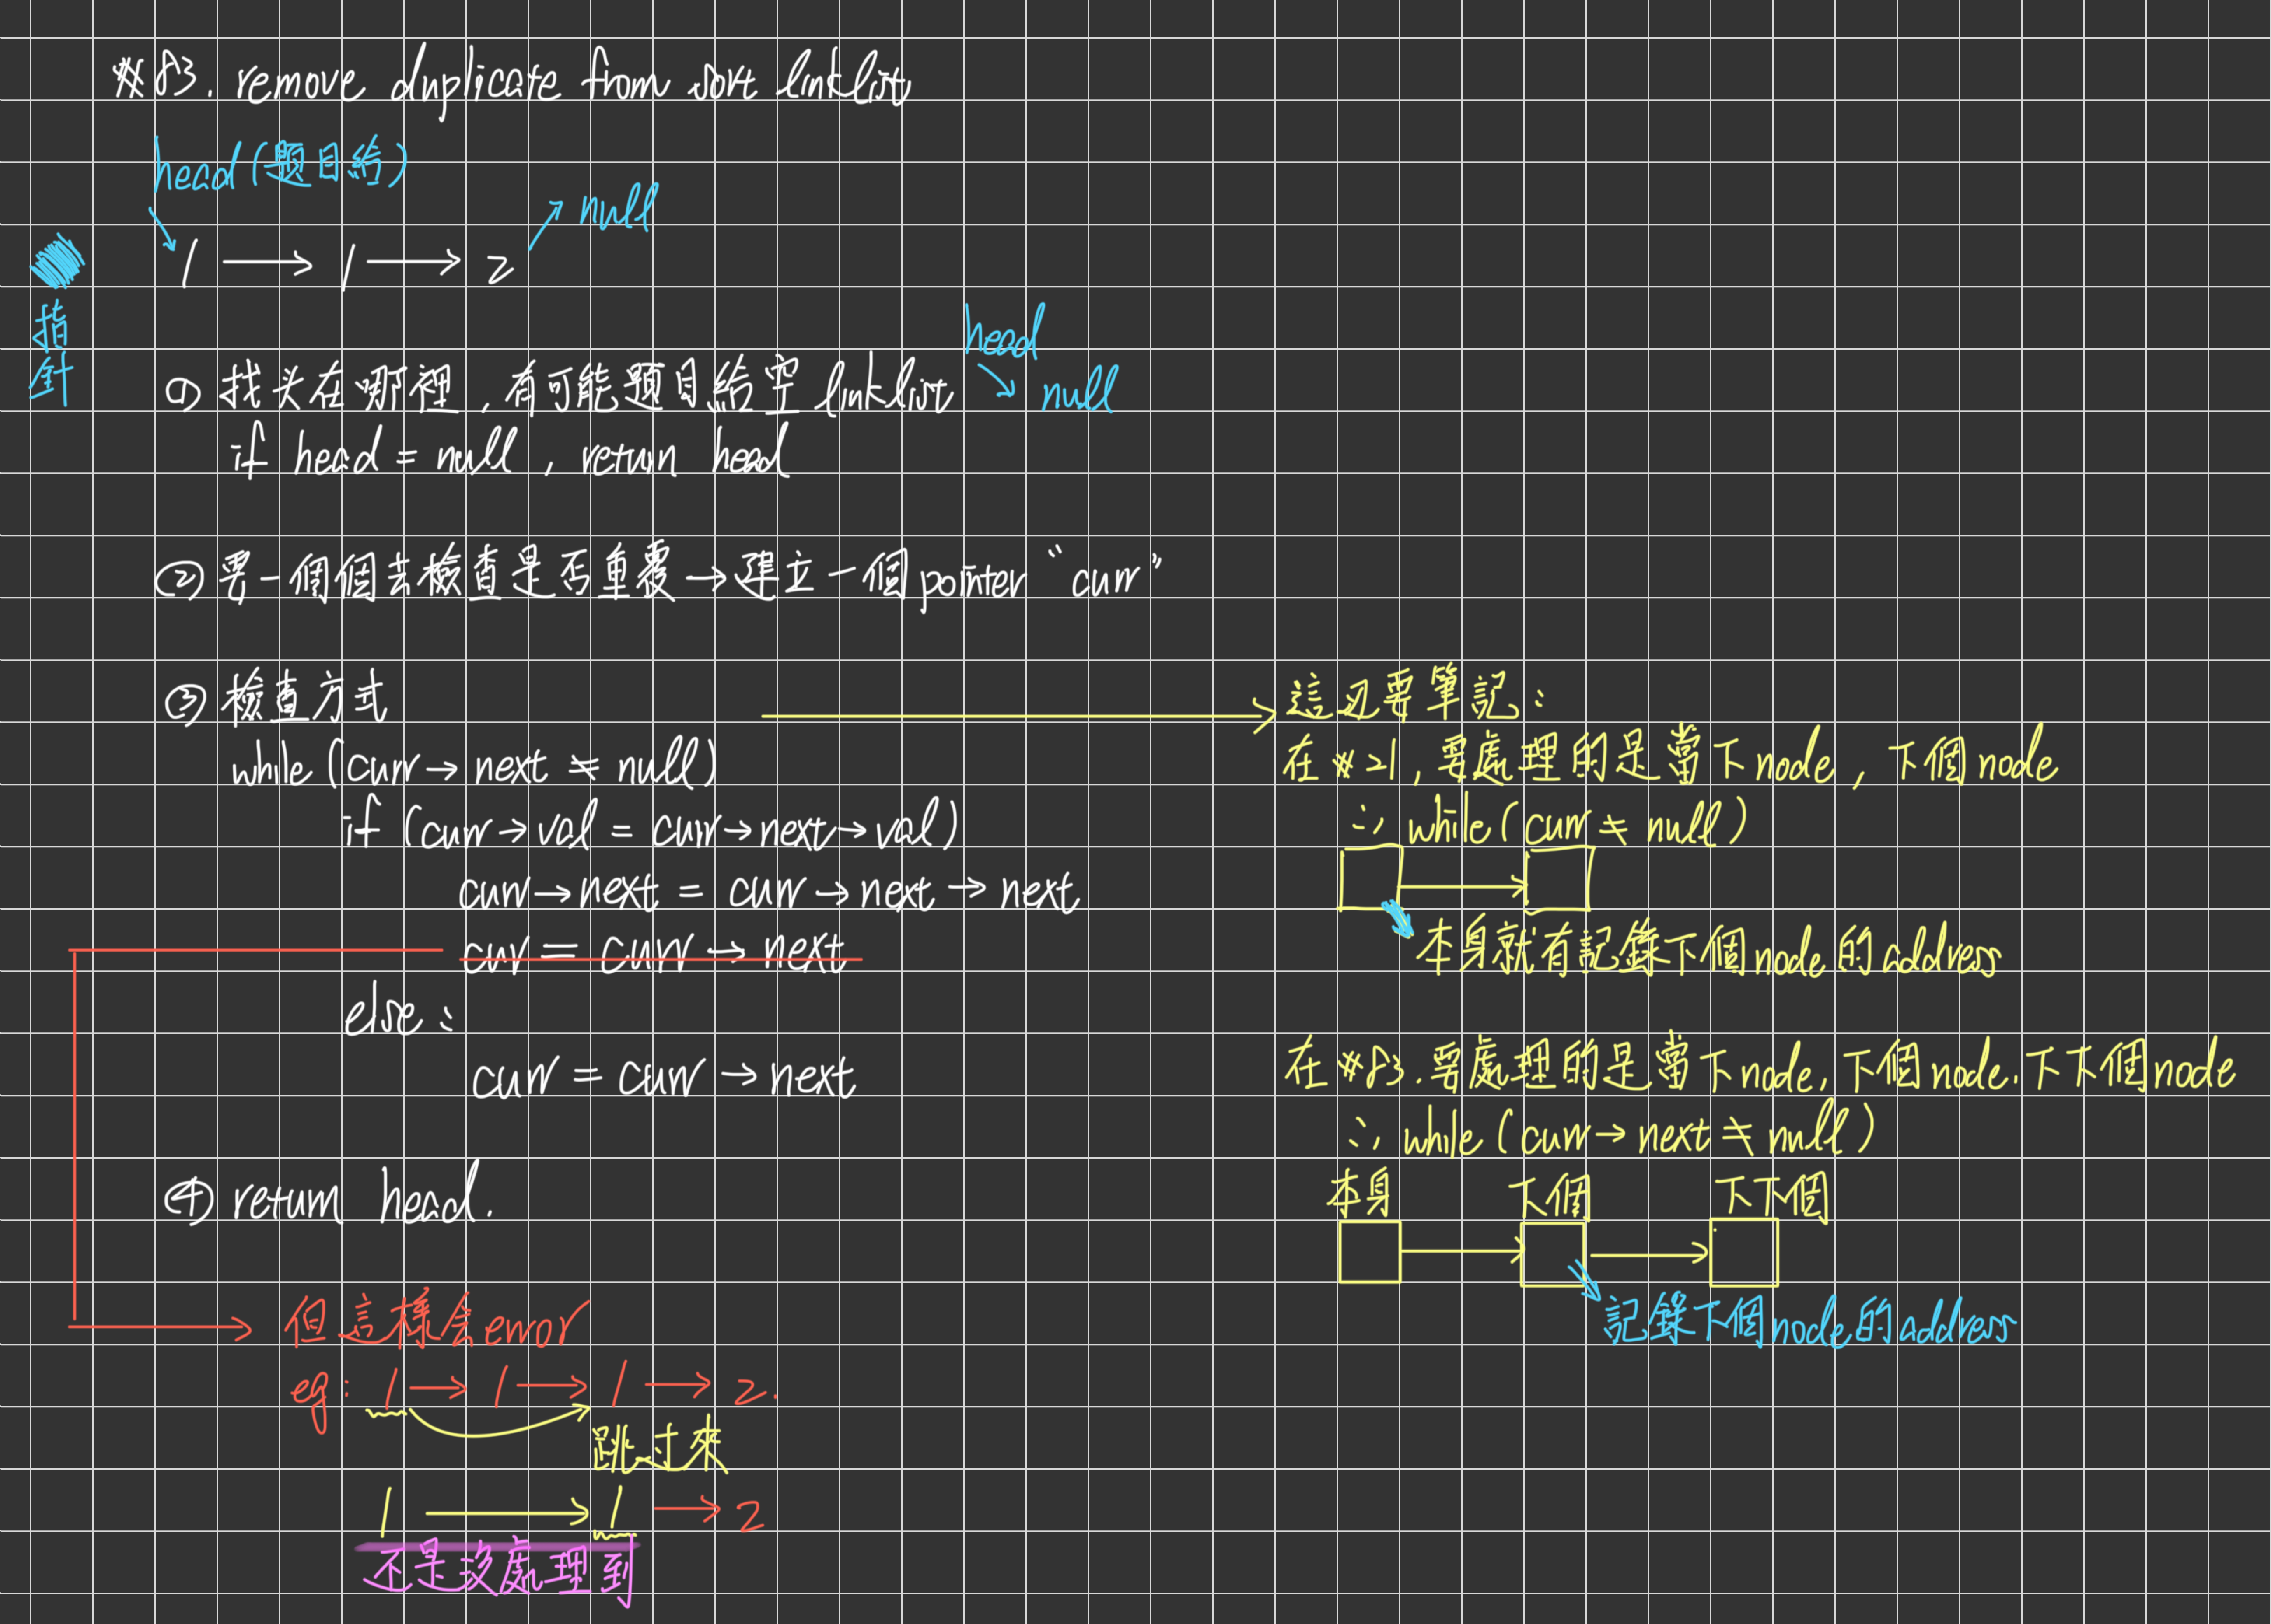 #83. remove duplicate from sort linklist
head(題目給)
null
1 → 1 → 2
指針
① 找头在哪裡,有可能題目給空linklist
head
null
if head = null, return head
② 要一個個去檢查是否重覆→建立一個pointer "curr"
③ 檢查方式
while (curr→next ≠ null)
if (curr→val = curr→next→val)
curr→next = curr→next→next
cur = curr→next
else:
curr = curr→next
④ return head.
但這樣会error
eg: 1 → 1 → 1 → 2.
跳过來
1 → 1 → 2
还是沒處理到
這边要筆記:
在#21,要處理的是當下node,下個node
∴ while(curr ≠ null)
本身就有記錄下個node的address
在#83.要處理的是當下node,下個node.下下個node
∴ while(curr→next ≠ null)
本身 下個 下下個
記錄下個node的address